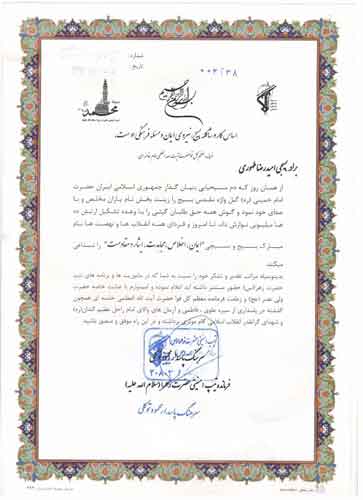 شماره:
تاریخ:
محمد
اساس کار و شاکله بسیج، نیروی ایمان و مسئله فرهنگی است.
برادر بسیجی امیدرضا طهوری
از همان روز که دم مسیحیایی بنیان گذار جمهوری اسلامی ایران حضرت
امام خمینی (ره) گل واژه مقدس بسیج را زینت بخش نام یاران مخلص و با
صفای خود نمود و گوش همه حق طلبان گیتی را با وعده تشکیل ارتش ده
ها میلیونی نوازش داد، تا امروز و فردای همه انقلاب ها و نهضت ها نام
مبارک بسیج و بسیجی "ایمان، اخلاص، مجاهدت، ایثار و مقاومت" را تداعی
میکند.
بدینوسیله مراتب تقدیر و تشکر خود را نسبت به شما که در ماموریت ها و برنامه های تیپ
حضرت زهرا(س) حضور مستمر داشته اید اعلام نموده و امیدوارم با عنایت خاصه حضرت
ولی عصر (عج) و زعامت فرمانده معظم کل قوا حضرت آیت الله العظمی خامنه ای همچون
گذشته در پاسداری از سیره علوی، فاطمی و آرمان های والای امام راحل عظیم الشان(ره)
و شهدای گرانقدر انقلاب اسلامی گام موثری برداشته و در این راه موفق و منصور باشید.
فرمانده تیپ امنیتی حضرت زهرا(سلام الله علیه)
سرهنگ پاسدار محمود توکلی